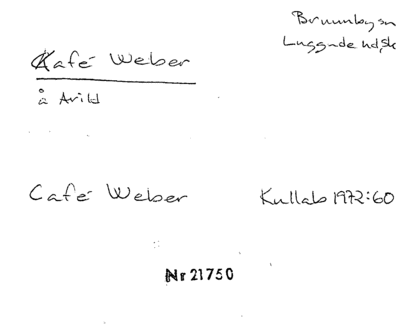 Brunnby sn
Luggude hd, sk
Kafé Weber
å Arild
Café Weber
Kullab 1972:60
Nr 21750